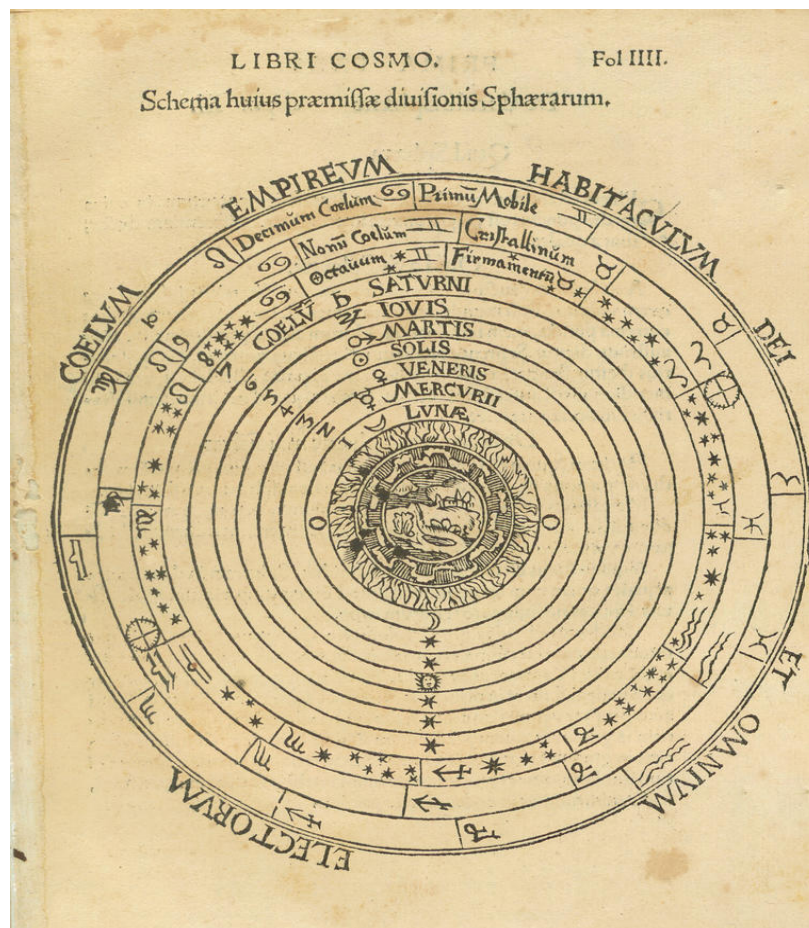 LIBRI COSMO. Fol IIII.
Schema huius præmissæ diuisionis Sphærarum.
COELVM EMPIREVM HABITACVLVM DEI ET OMNIVM ELECTORVM
Decimum Coelum Primū Mobile
Nonū Coelum Cristallinum
Octauum Firmamentū
COELV̄ SATVRNI
IOVIS
MARTIS
SOLIS
VENERIS
MERCVRII
LVNÆ
7
6
5
4
3
2
1